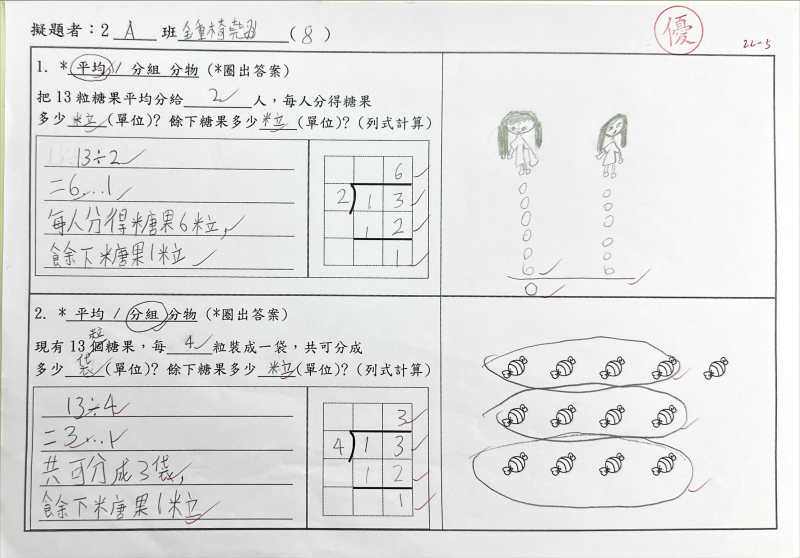 擬題者：2 A 班 鍾椅 (8)
優
22-5
1. * 平均 / 分組 分物 (*圈出答案)
把 13 粒糖果平均分給 2 人，每人分得糖果
多少 粒 (單位)? 餘下糖果多少 粒 (單位)? (列式計算)
13÷2
=6...1
每人分得糖果6粒，
餘下糖果1粒
6
2 1 3
1 2
1
2. * 平均 / 分組 分物 (*圈出答案)
粒
現有 13 個糖果，每 4 粒裝成一袋，共可分成
多少 袋 (單位)? 餘下糖果多少 粒 (單位)? (列式計算)
13÷4
=3...1
共可分成3袋，
餘下糖果1粒
3
4 1 3
1 2
1